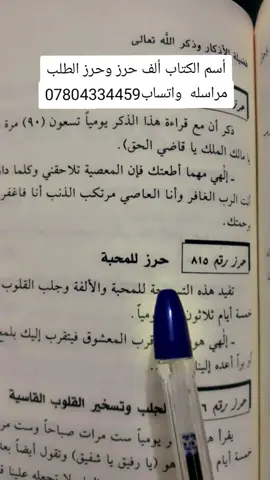 فضيلة الأذكار وذكر الله تعالى
أسم الكتاب ألف حرز وحرز الطلب
مراسله واتساب07804334459
ذكر أن مع قراءة هذا الذكر يومياً تسعون (٩٠) مرة
يا مالك الملك يا قاضي الحق).
ـ إلهي مهما أطعتك فإن المعصية تلاحقني وكلما
أنت الرب الغافر وأنا العاصي مرتكب الذنب أنا فاغفر
برحمتك.
حرز رقم ٨١٥
حرز للمحبة
تفيد هذه للمحبة والألفة وجلب القلوب
خمسة أيام ثلاثون يومياً.
ـ إلهي قرب المعشوق فيتقرب إليك
أو برأ أعده إلينا
حرز رقم
لجلب وتسخير القلوب القاسية
يقرأ يومياً ست مرات صباحاً وست
خمسة هو (يا رفيق يا شفيق) وتقول أيضاً